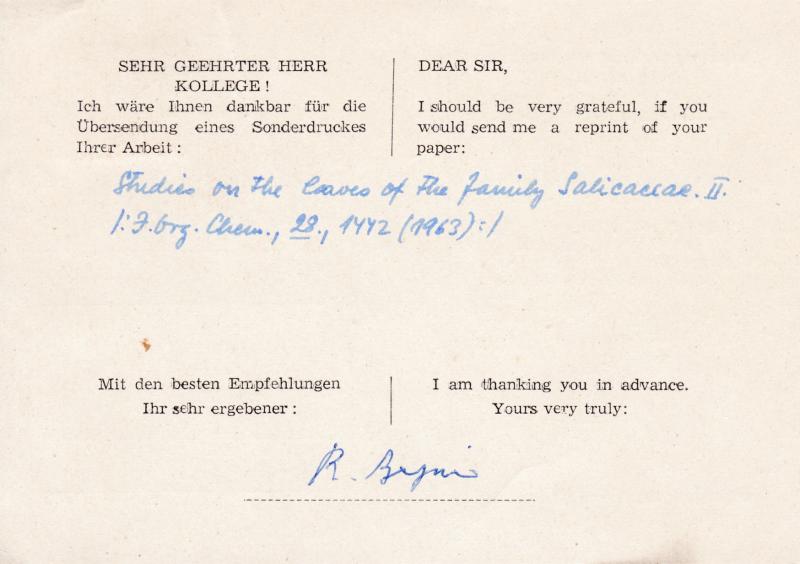 SEHR GEEHRTER HERR
KOLLEGE !
Ich wäre Ihnen dankbar für die
Übersendung eines Sonderdruckes
Ihrer Arbeit :
DEAR SIR,
I should be very grateful, if you
would send me a reprint of your
paper:
Studies on the leaves of the family Salicaceae. II.
/: J. Org. Chem., 28., 1442 (1963) :/
Mit den besten Empfehlungen
Ihr sehr ergebener :
I am thanking you in advance.
Yours very truly:
R.